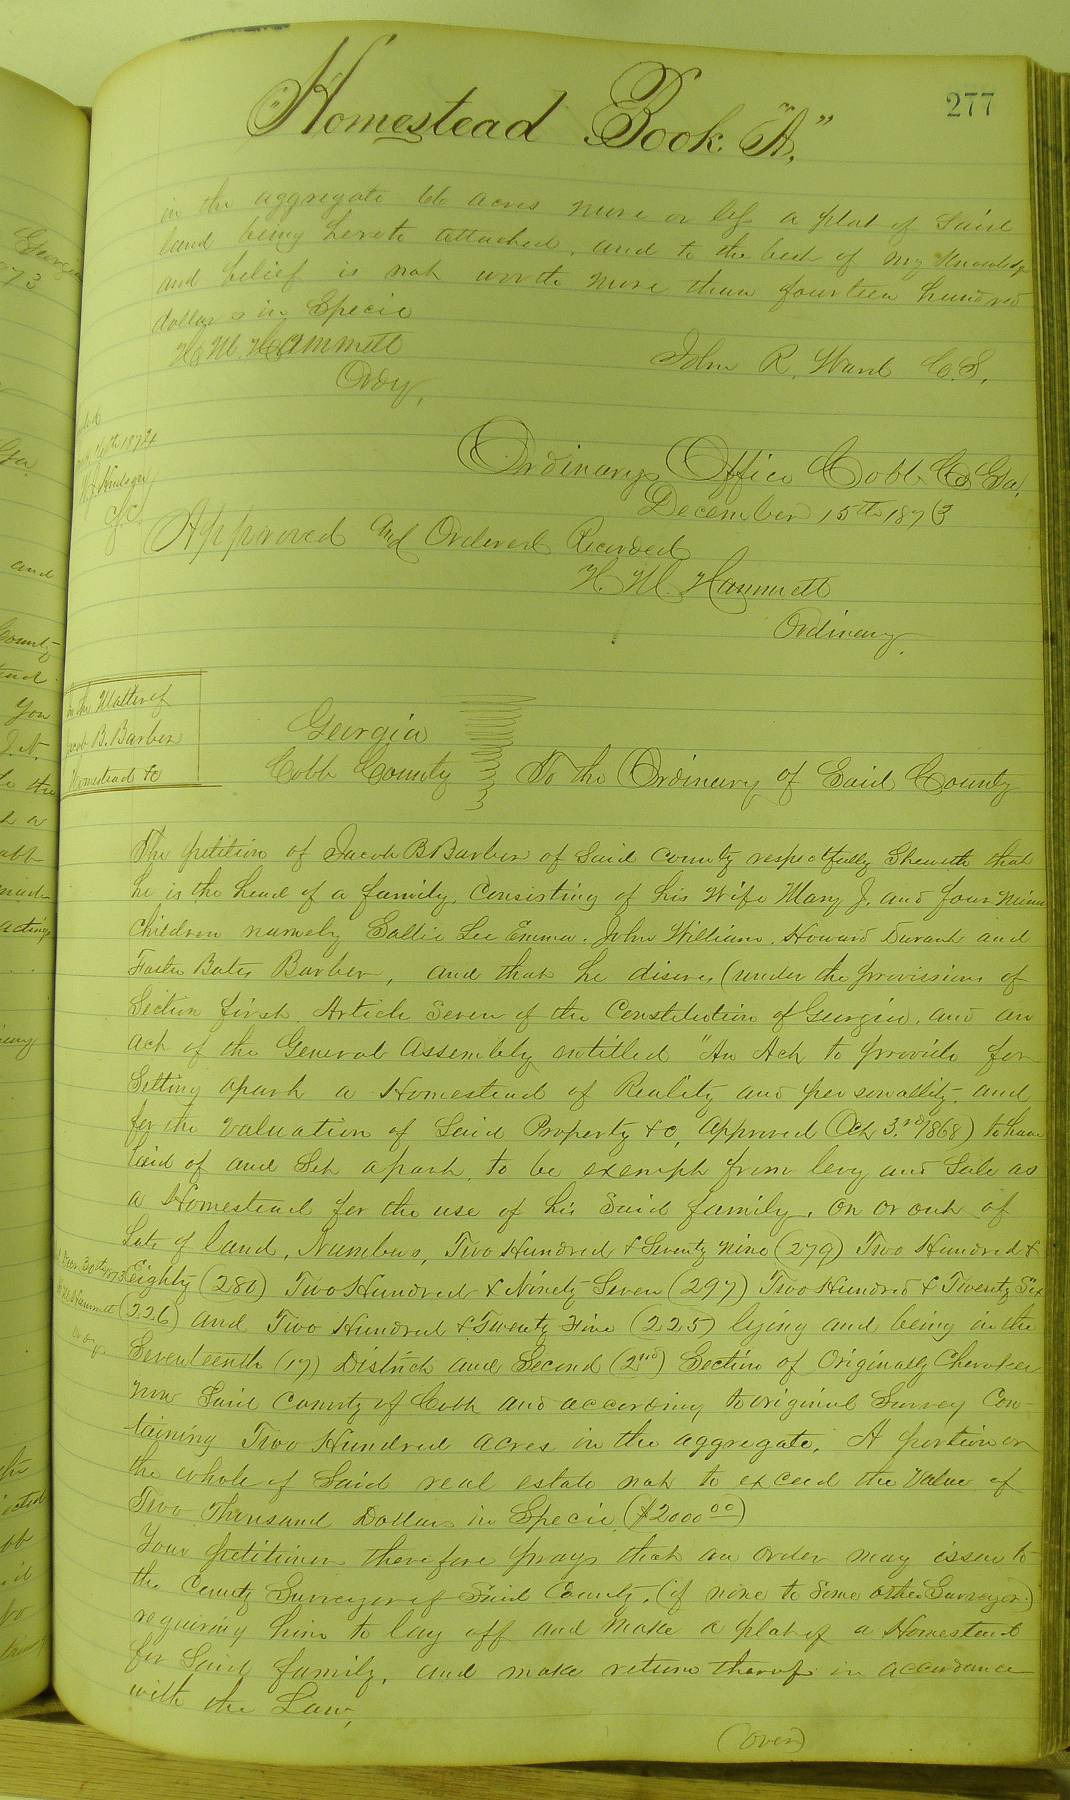 277
Homestead Book "A,"
in the aggregate 66 acres more or less a plat of Said
land being hereto attached, and to the best of my Knowledge
and belief is not worth more than fourteen hundred
dollars in Specie
H. M. Hammett
Ordy,
John R. Ward C.S.
1874
Ordinarys Office Cobb Co Ga,
December 15th 1873
Approved and Ordered Recorded
H. M. Hammett
Ordinary.
In the Matter of
Jacob B. Barber
Homestead &c
Georgia
Cobb County
To the Ordinary of Said County
The petition of Jacob B Barber of Said County respectfully Sheweth that
he is the head of a family, Consisting of his Wife Mary J. and four minor
Children namely Sallie Lee Emma. John William, Howard Durant and
Foster Bates Barber, and that he disires (under the provisions of
Section first. Article Seven of the Constitution of Georgia, and an
Act of the General Assembly entitled "An Act to provide for
Setting apart a Homestead of Reality and personallity, and
for the valuation of Said Property &c, Approved Oct 3.rd 1868) to have
laid of and Set apart, to be exempt from levy and Sale as
a Homestead for the use of his Said family, on or out of
Lots of land, Numbers, Two Hundred & Seventy Nine (279) Two Hundred &
Eighty (280) Two Hundred & Ninety Seven (297) Two Hundred & Twenty Six
(226) and Two Hundred & Twenty Five (225) lying and being in the
Seventeenth (17) District and Second (2nd) Section of Originally Cherokee
now Said County of Cobb and according to original Survey Con-
taining Two Hundred acres in the aggregate. A portion or
the whole of Said real estate not to exceed the Value of
Two Thousand Dollars in Specie ($2000 00)
Your petitioner therefore prays that an order may issue to
the County Surveyor of Said County, (if none to Some other Surveyor)
requiring him to lay off and make a plat of a Homestead
for Said family, and make return thereof in accordance
with the Law,
Dec. 30th 1873
H M Hammett
Ordy
(over)